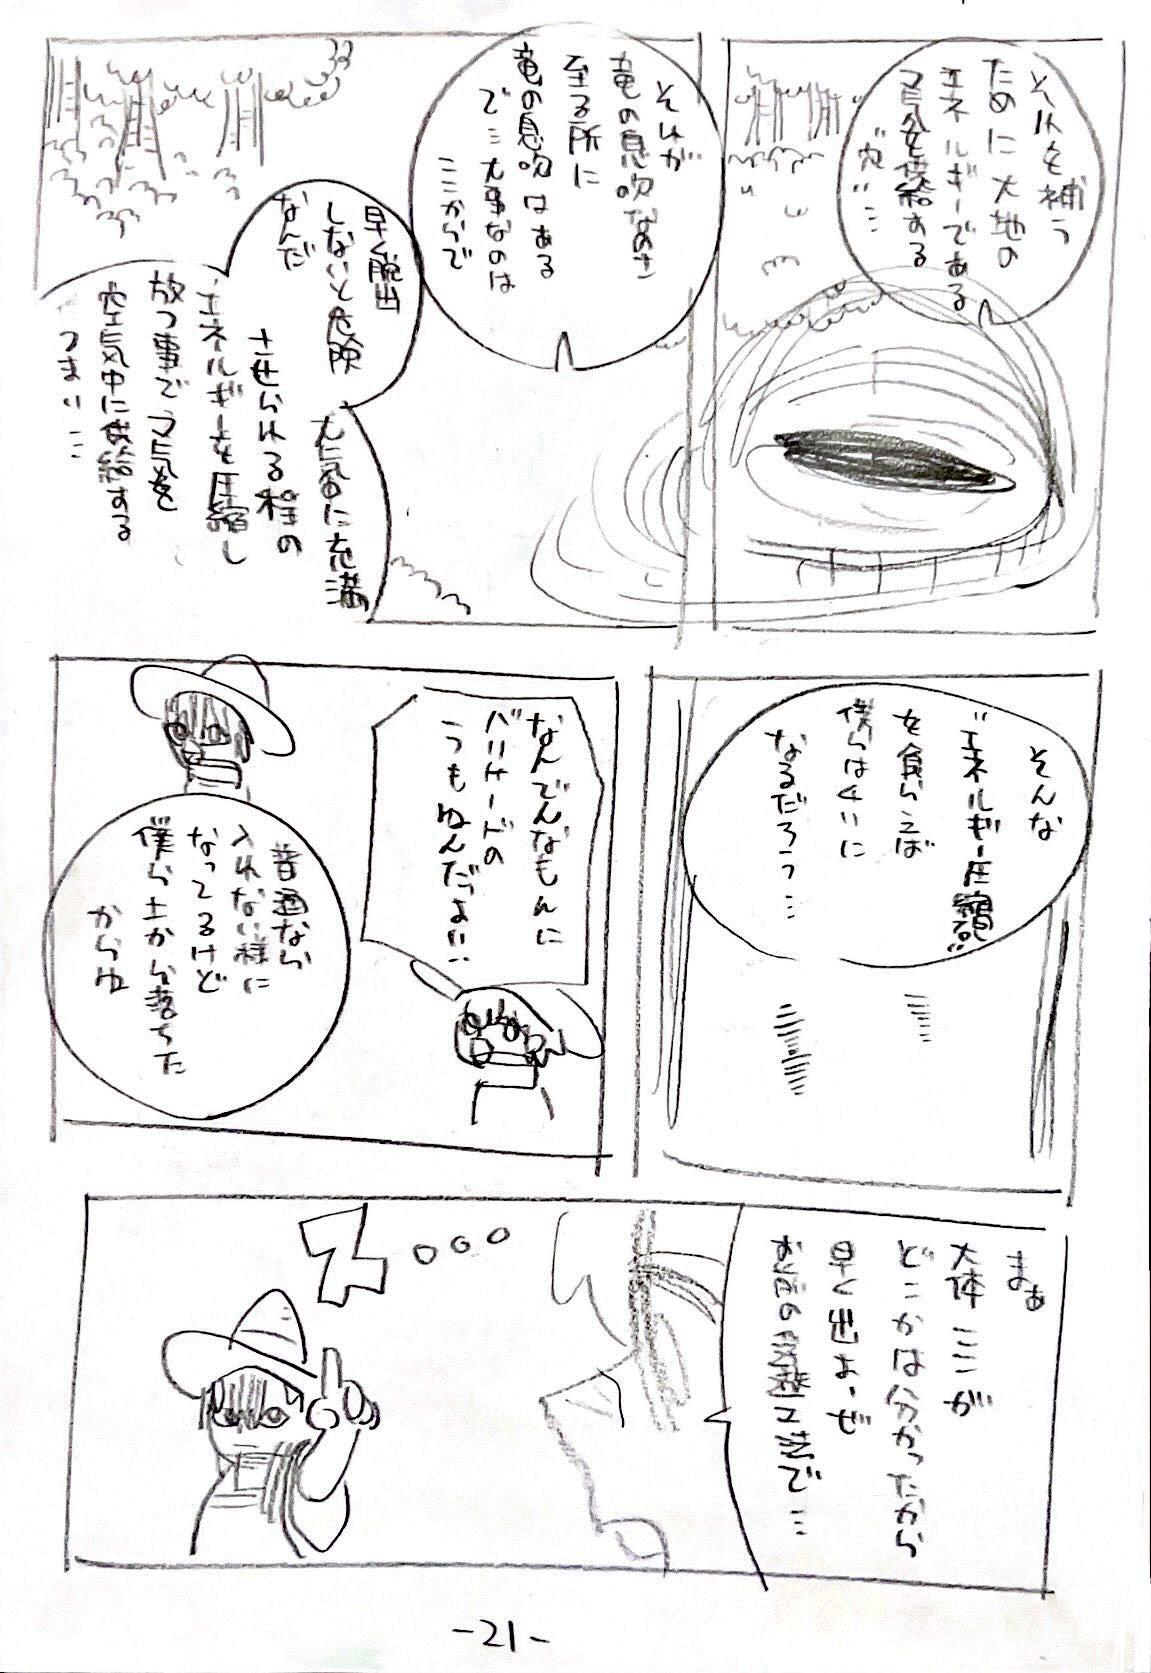 それを補う
ために大地の
エネルギーである
マ気を供給する
"穴"…
それが
竜の息吹なのさ
至る所に
竜の息吹はある
で…大事なのは
ここからで
早く脱出
しないと危険
なんだ
大気に充満
させられる程の
エネルギーを圧縮し
放つ事でマ気を
空気中に供給する
つまい…
そんな
"エネルギー圧縮砲"
を食らえば
僕らはタイに
なるだろう…
なんでんなもんに
バリケードの
つもねんだよ!!
普通なら
入れない様に
なってるけど
僕ら上から落ちた
からね
まぁ
大体ここが
どこかは分かったから
早く出よーぜ
お前の工法で…
-21-